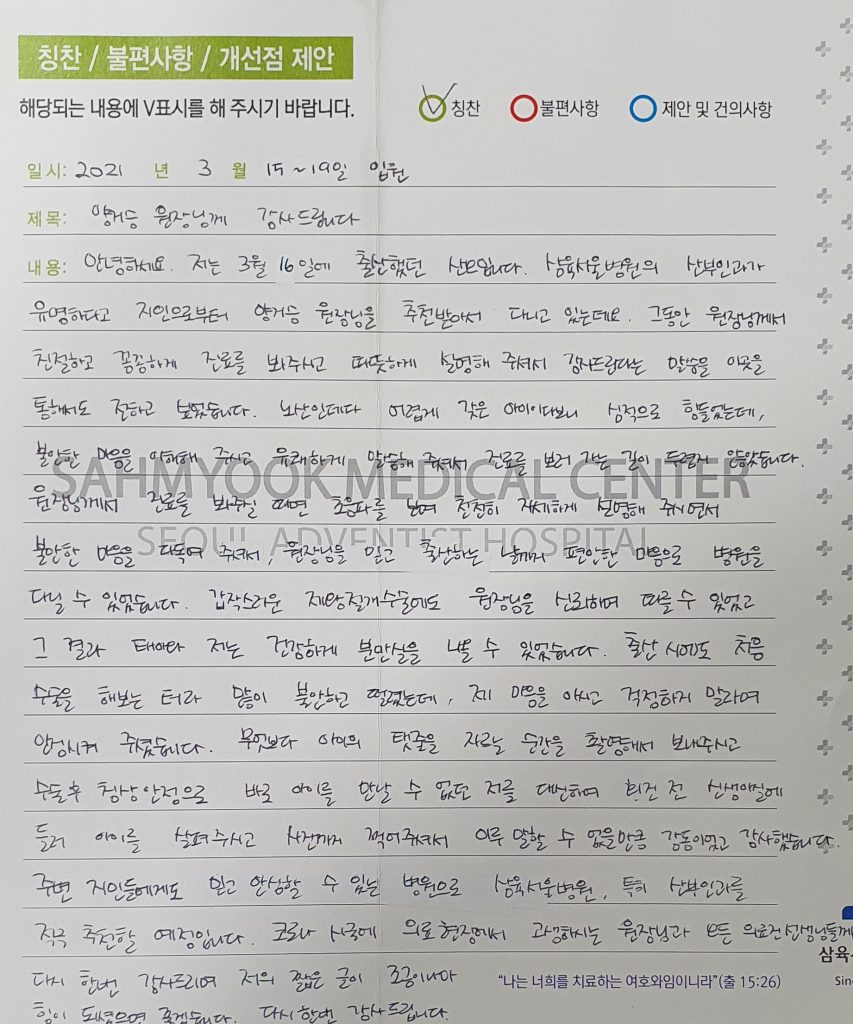 칭찬 / 불편사항 / 개선점 제안
해당되는 내용에 V표시를 해 주시기 바랍니다. 칭찬 불편사항 제안 및 건의사항
일 시: 2021 년 3 월 15~19일 입원
제 목: 양거승 원장님께 감사드립니다
내 용: 안녕하세요. 저는 3월 16일에 출산했던 산모입니다. 삼육서울병원의 산부인과가
유명하다고 지인으로부터 양거승 원장님을 추천받아서 다니고 있는데요. 그동안 원장님께서
친절하고 꼼꼼하게 진료를 봐주시고 따뜻하게 설명해 주셔서 감사드린다는 말씀을 이곳을
통해서도 전하고 싶었습니다. 노산인데다 어렵게 갖은 아이이다보니 심적으로 힘들었는데,
불안한 마음을 이해해 주시고 유쾌하게 말씀해 주셔서 진료를 보러 가는 길이 두렵지 않았습니다.
SAHMYOOK MEDICAL CENTER
원장님께서 진료를 봐주실 때면 초음파를 보며 천천히 자세하게 설명해 주시면서
SEOUL ADVENTIST HOSPITAL
불안한 마음을 다독여 주셔서, 원장님을 믿고 출산하는 날까지 편안한 마음으로 병원을
다닐 수 있었습니다. 갑작스러운 제왕절개수술에도 원장님을 신뢰하며 따를 수 있었고
그 결과 태아와 저는 건강하게 분만실을 나올 수 있었습니다. 출산 시에도 처음
수술을 해보는 터라 많이 불안하고 떨렸는데, 제 마음을 아시고 걱정하지 말라며
안심시켜 주셨습니다. 무엇보다 아이의 탯줄을 자르는 순간을 촬영해서 보내주시고
수술후 침상안정으로 바로 아이를 만날 수 없던 저를 대신하여 회진 전 신생아실에
들러 아이를 살펴주시고 사진까지 찍어주셔서 이루 말할 수 없을만큼 감동이었고 감사했습니다.
주변 지인들에게도 믿고 안심할 수 있는 병원으로 삼육서울병원, 특히 산부인과를
적극 추천할 예정입니다. 코로나 시국에 의료현장에서 고생하시는 원장님과 모든 의료진선생님들께
다시 한번 감사드리며 저의 짧은 글이 조금이나마
힘이 되셨으면 좋겠습니다. 다시한번 감사드립니다.
삼육
"나는 너희를 치료하는 여호와임이니라"(출 15:26)
Sin